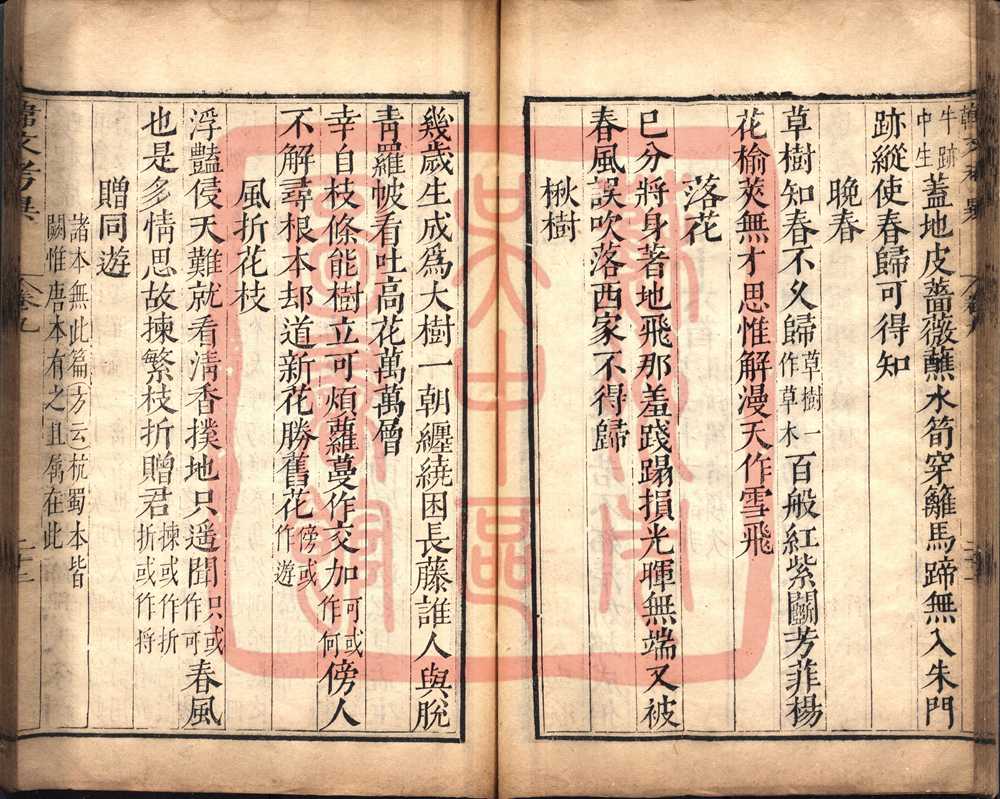 牛跡中生蓋地皮薔薇蘸水筍穿籬馬蹄無入朱門
跡縱使春歸可得知
晚春
草樹知春不久歸草樹一作草木百般紅紫鬭芳菲楊
花榆莢無才思惟解漫天作雪飛
落花
已分將身著地飛那羞踐蹋損光暉無端又被
春風誤吹落西家不得歸
楸樹
幾歲生成爲大樹一朝纒繞困長藤誰人與脫
青羅帔看吐高花萬萬層
幸自枝條能樹立可煩蘿蔓作交加可或作何傍人
不解尋根本却道新花勝舊花傍或作遊
風折花枝
浮豔侵天難就看淸香撲地只遥聞只或作可春風
也是多情思故揀繁枝折贈君揀或作折折或作將
贈同遊
諸本無此篇方云杭蜀本皆闕惟唐本有之且屬在此
韓文考異
卷九